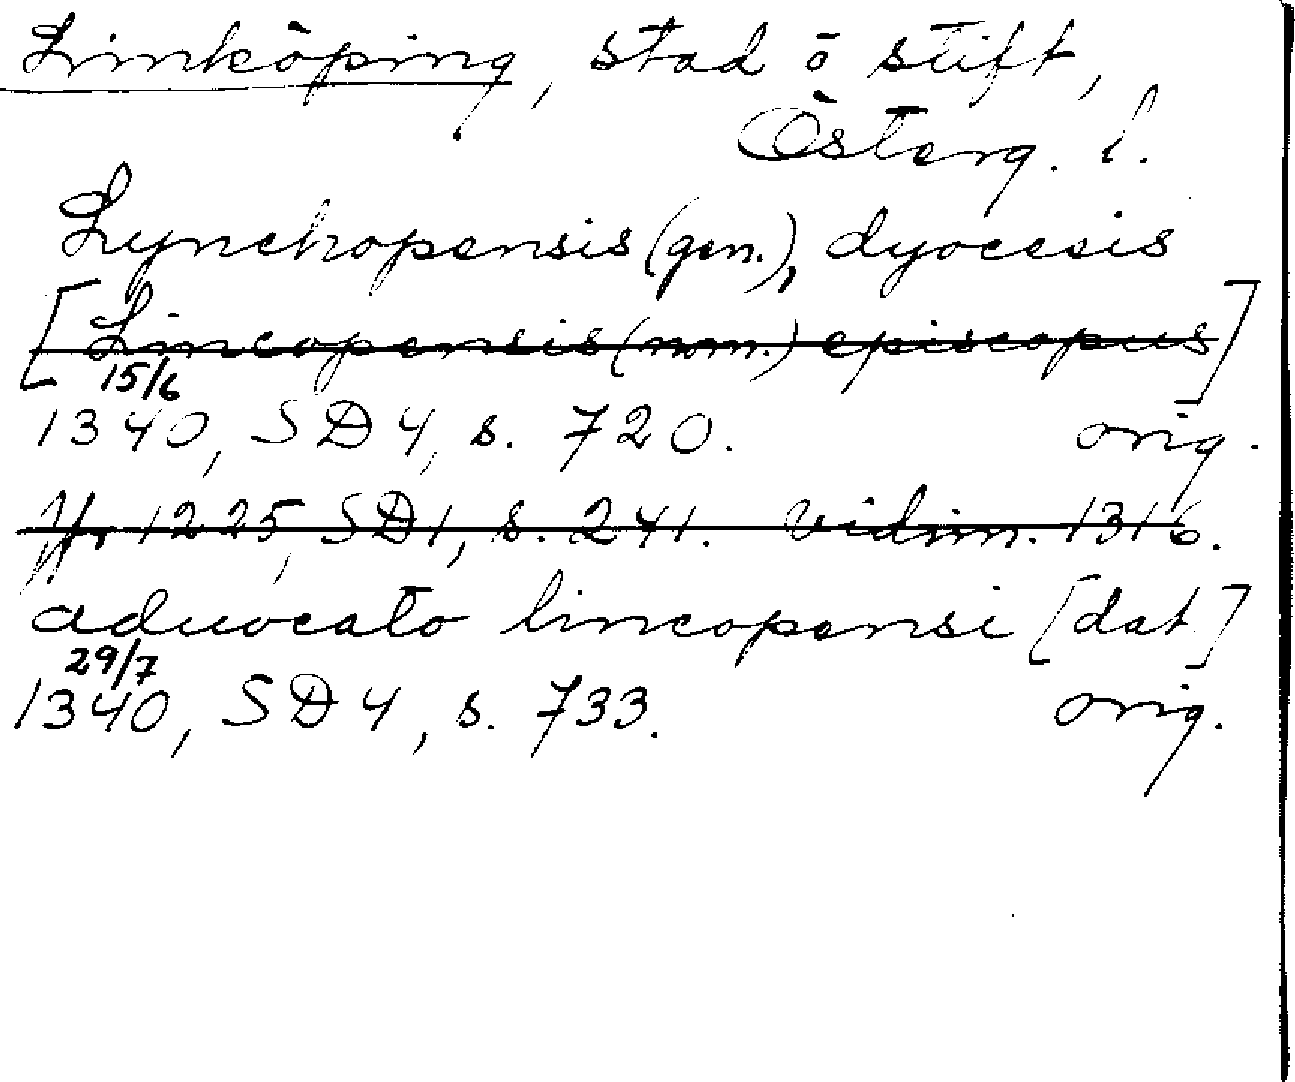 Linköping, stad o stift,
Österg. l.
Lynchopensis (gen.), dyocesis
[Lincopensis (nom.) episcopus]
15/6
1340, SD 4, s. 720. orig.
1225, SD 1, s. 241. Vidim. 1316.
aduocato lincopensi [dat]
29/7
1340, SD 4, s. 733. orig.